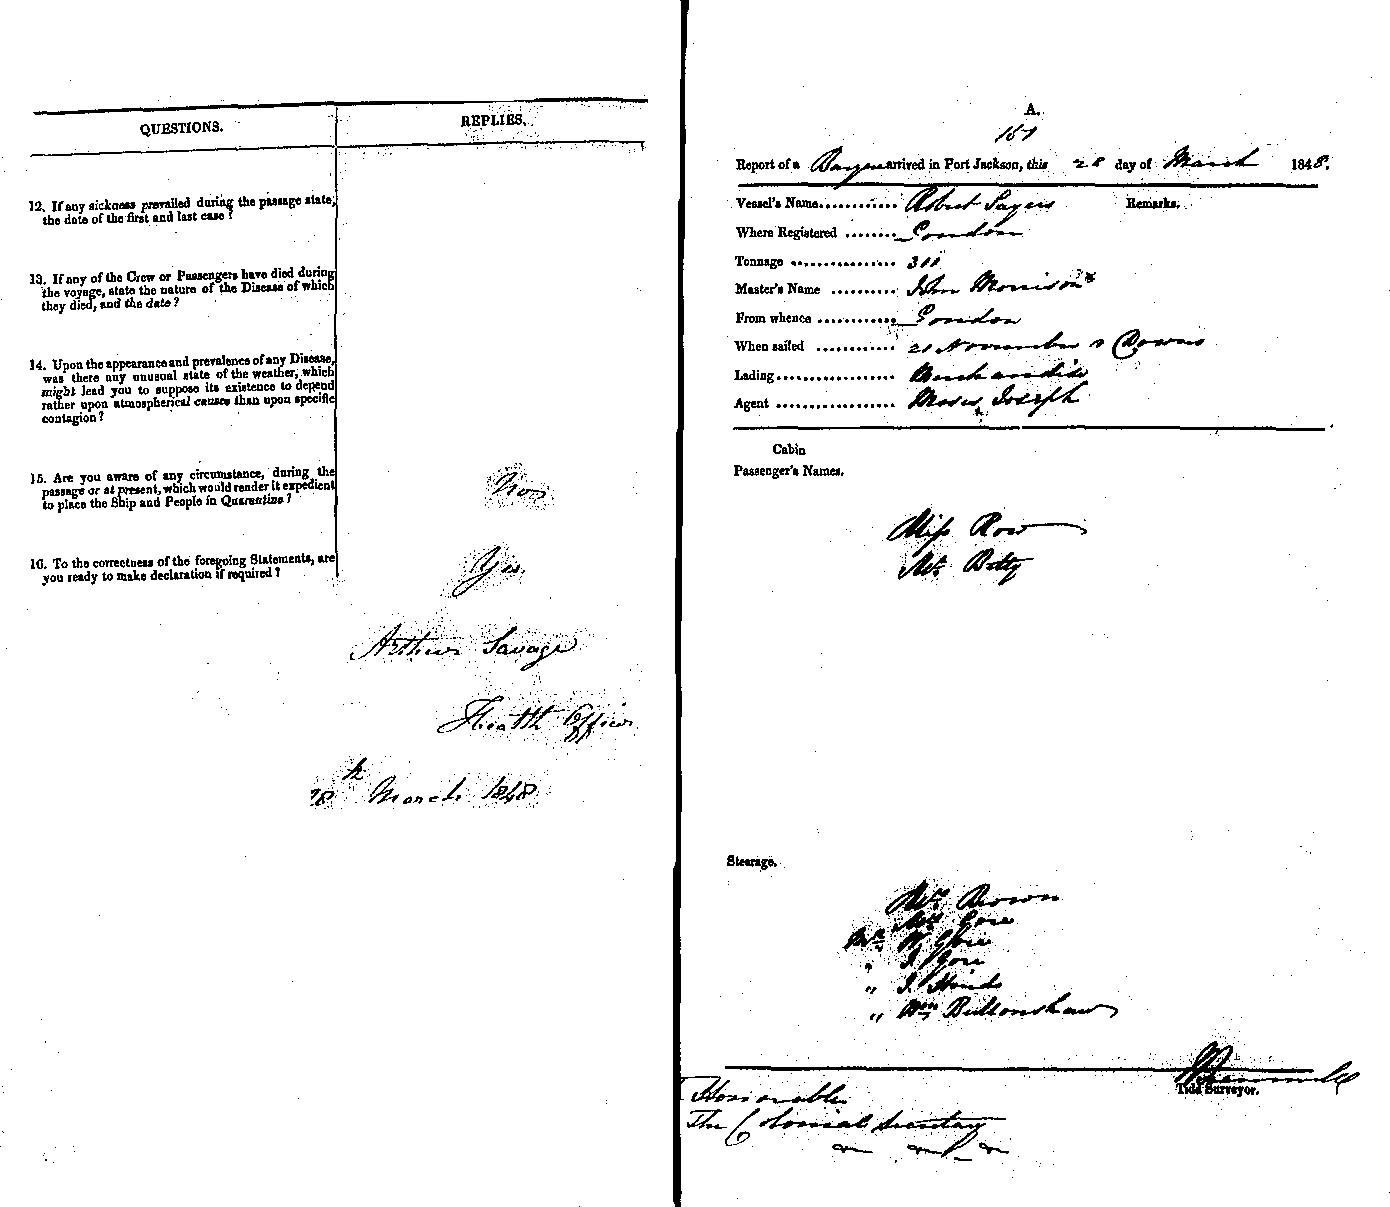 QUESTIONS.
REPLIES.
12. If any sickness prevailed during the passage state,
the date of the first and last case?
13. If any of the Crew or Passengers have died during
the voyage, state the nature of the Disease of which
they died, and the date?
14. Upon the appearance and prevalence of any Disease,
was there any unusual state of the weather, which
might lead you to suppose its existence to depend
rather upon atmospherical causes than upon specific
contagion?
15. Are you aware of any circumstance, during the
passage or at present, which would render it expedient
to place the Ship and People in Quarantine?
No
16. To the correctness of the foregoing Statements, are
you ready to make declaration if required?
Yes.
Arthur Savage
Health Officer
28th March 1848
A.
Report of a Barque arrived in Port Jackson, this 28 day of March 1848.
Vessel's Name............ Robert Sayers Remarks.
Where Registered ........ London
Tonnage ................ 311
Master's Name .......... John Morrison
From whence ............ London
When sailed ............ 21 November Downs
Lading.................. Merchandise
Agent .................. Moses Joseph
Cabin
Passenger's Names.
Miss Row
Mr. Betty
Steerage.
Brown
Mrs Gore
Mr W. Gore
" J. Gore
" J. Hinds
" Wm Buttonshaw
Tide Surveyor.
Honorable
The Colonial Secretary